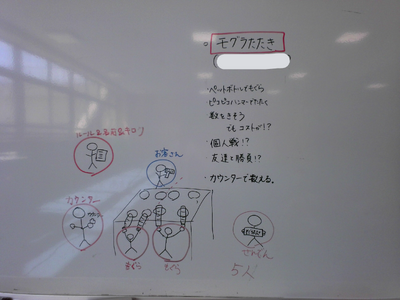 モグラたたき
・ペットボトルでもぐら
ピコピコハンマーでたたく
数をきそう
でもコストが!?
・個人戦!?
友達と勝負!?
・カウンターで数える。
お客さん
カウンター
もぐら
もぐら
5人